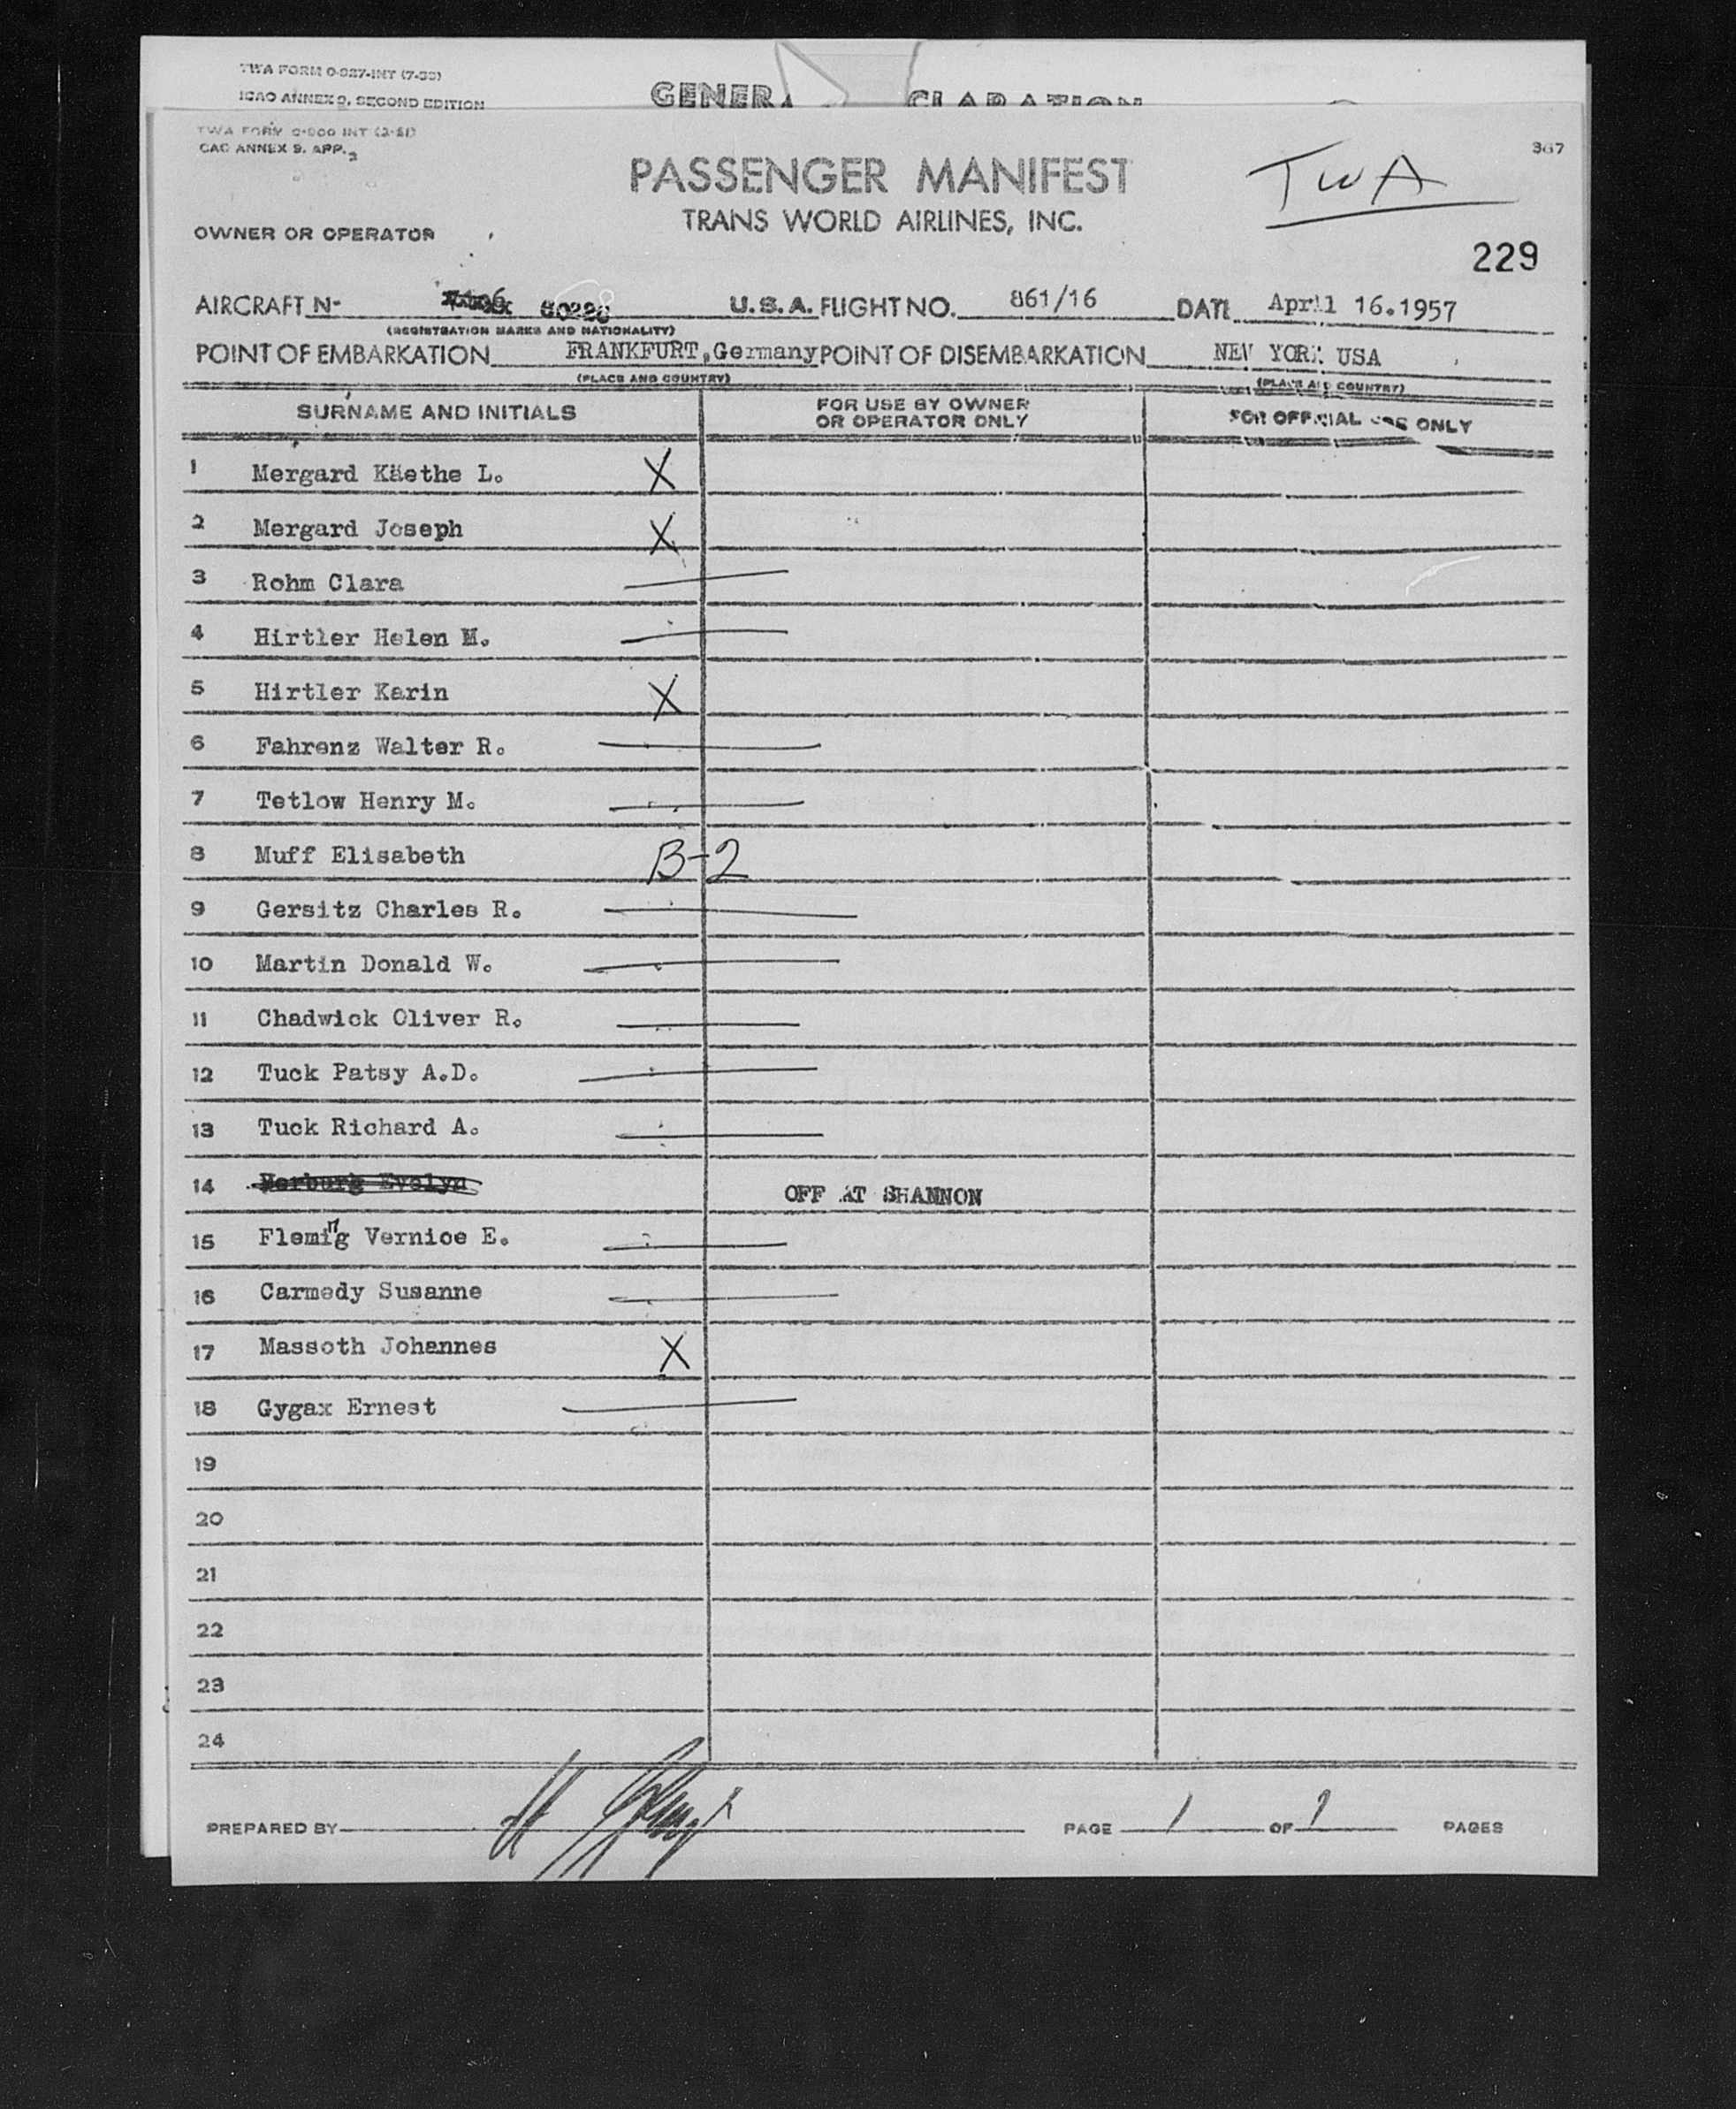 TWA FORM 0-927-INT (7-53)
ICAO ANNEX 9, SECOND EDITION
GENER CLARATION
TWA FORM 0-800 INT (2-51)
CAO ANNEX 9. APP. 2
367
PASSENGER MANIFEST
TWA
TRANS WORLD AIRLINES, INC.
OWNER OR OPERATOR
229
AIRCRAFT N- U.S.A. FLIGHT NO. 861/16 DATE April 16.1957
(REGISTRATION MARKS AND NATIONALITY)
POINT OF EMBARKATION FRANKFURT,Germany POINT OF DISEMBARKATION NEW YORK USA
(PLACE AND COUNTRY) (PLACE AND COUNTRY)
SURNAME AND INITIALS FOR USE BY OWNER OR OPERATOR ONLY FOR OFFICIAL USE ONLY
1 Mergard Käethe L. X
2 Mergard Joseph X
3 Rohm Clara
4 Hirtler Helen M.
5 Hirtler Karin X
6 Fahrenz Walter R.
7 Tetlow Henry M.
8 Muff Elisabeth B-2
9 Gersitz Charles R.
10 Martin Donald W.
11 Chadwick Oliver R.
12 Tuck Patsy A.D.
13 Tuck Richard A.
14 Evelyn OFF AT SHANNON
15 Fleming Vernice E.
16 Carmedy Susanne
17 Massoth Johannes X
18 Gygax Ernest
19
20
21
22
23
24
PREPARED BY PAGE 1 OF 1 PAGES